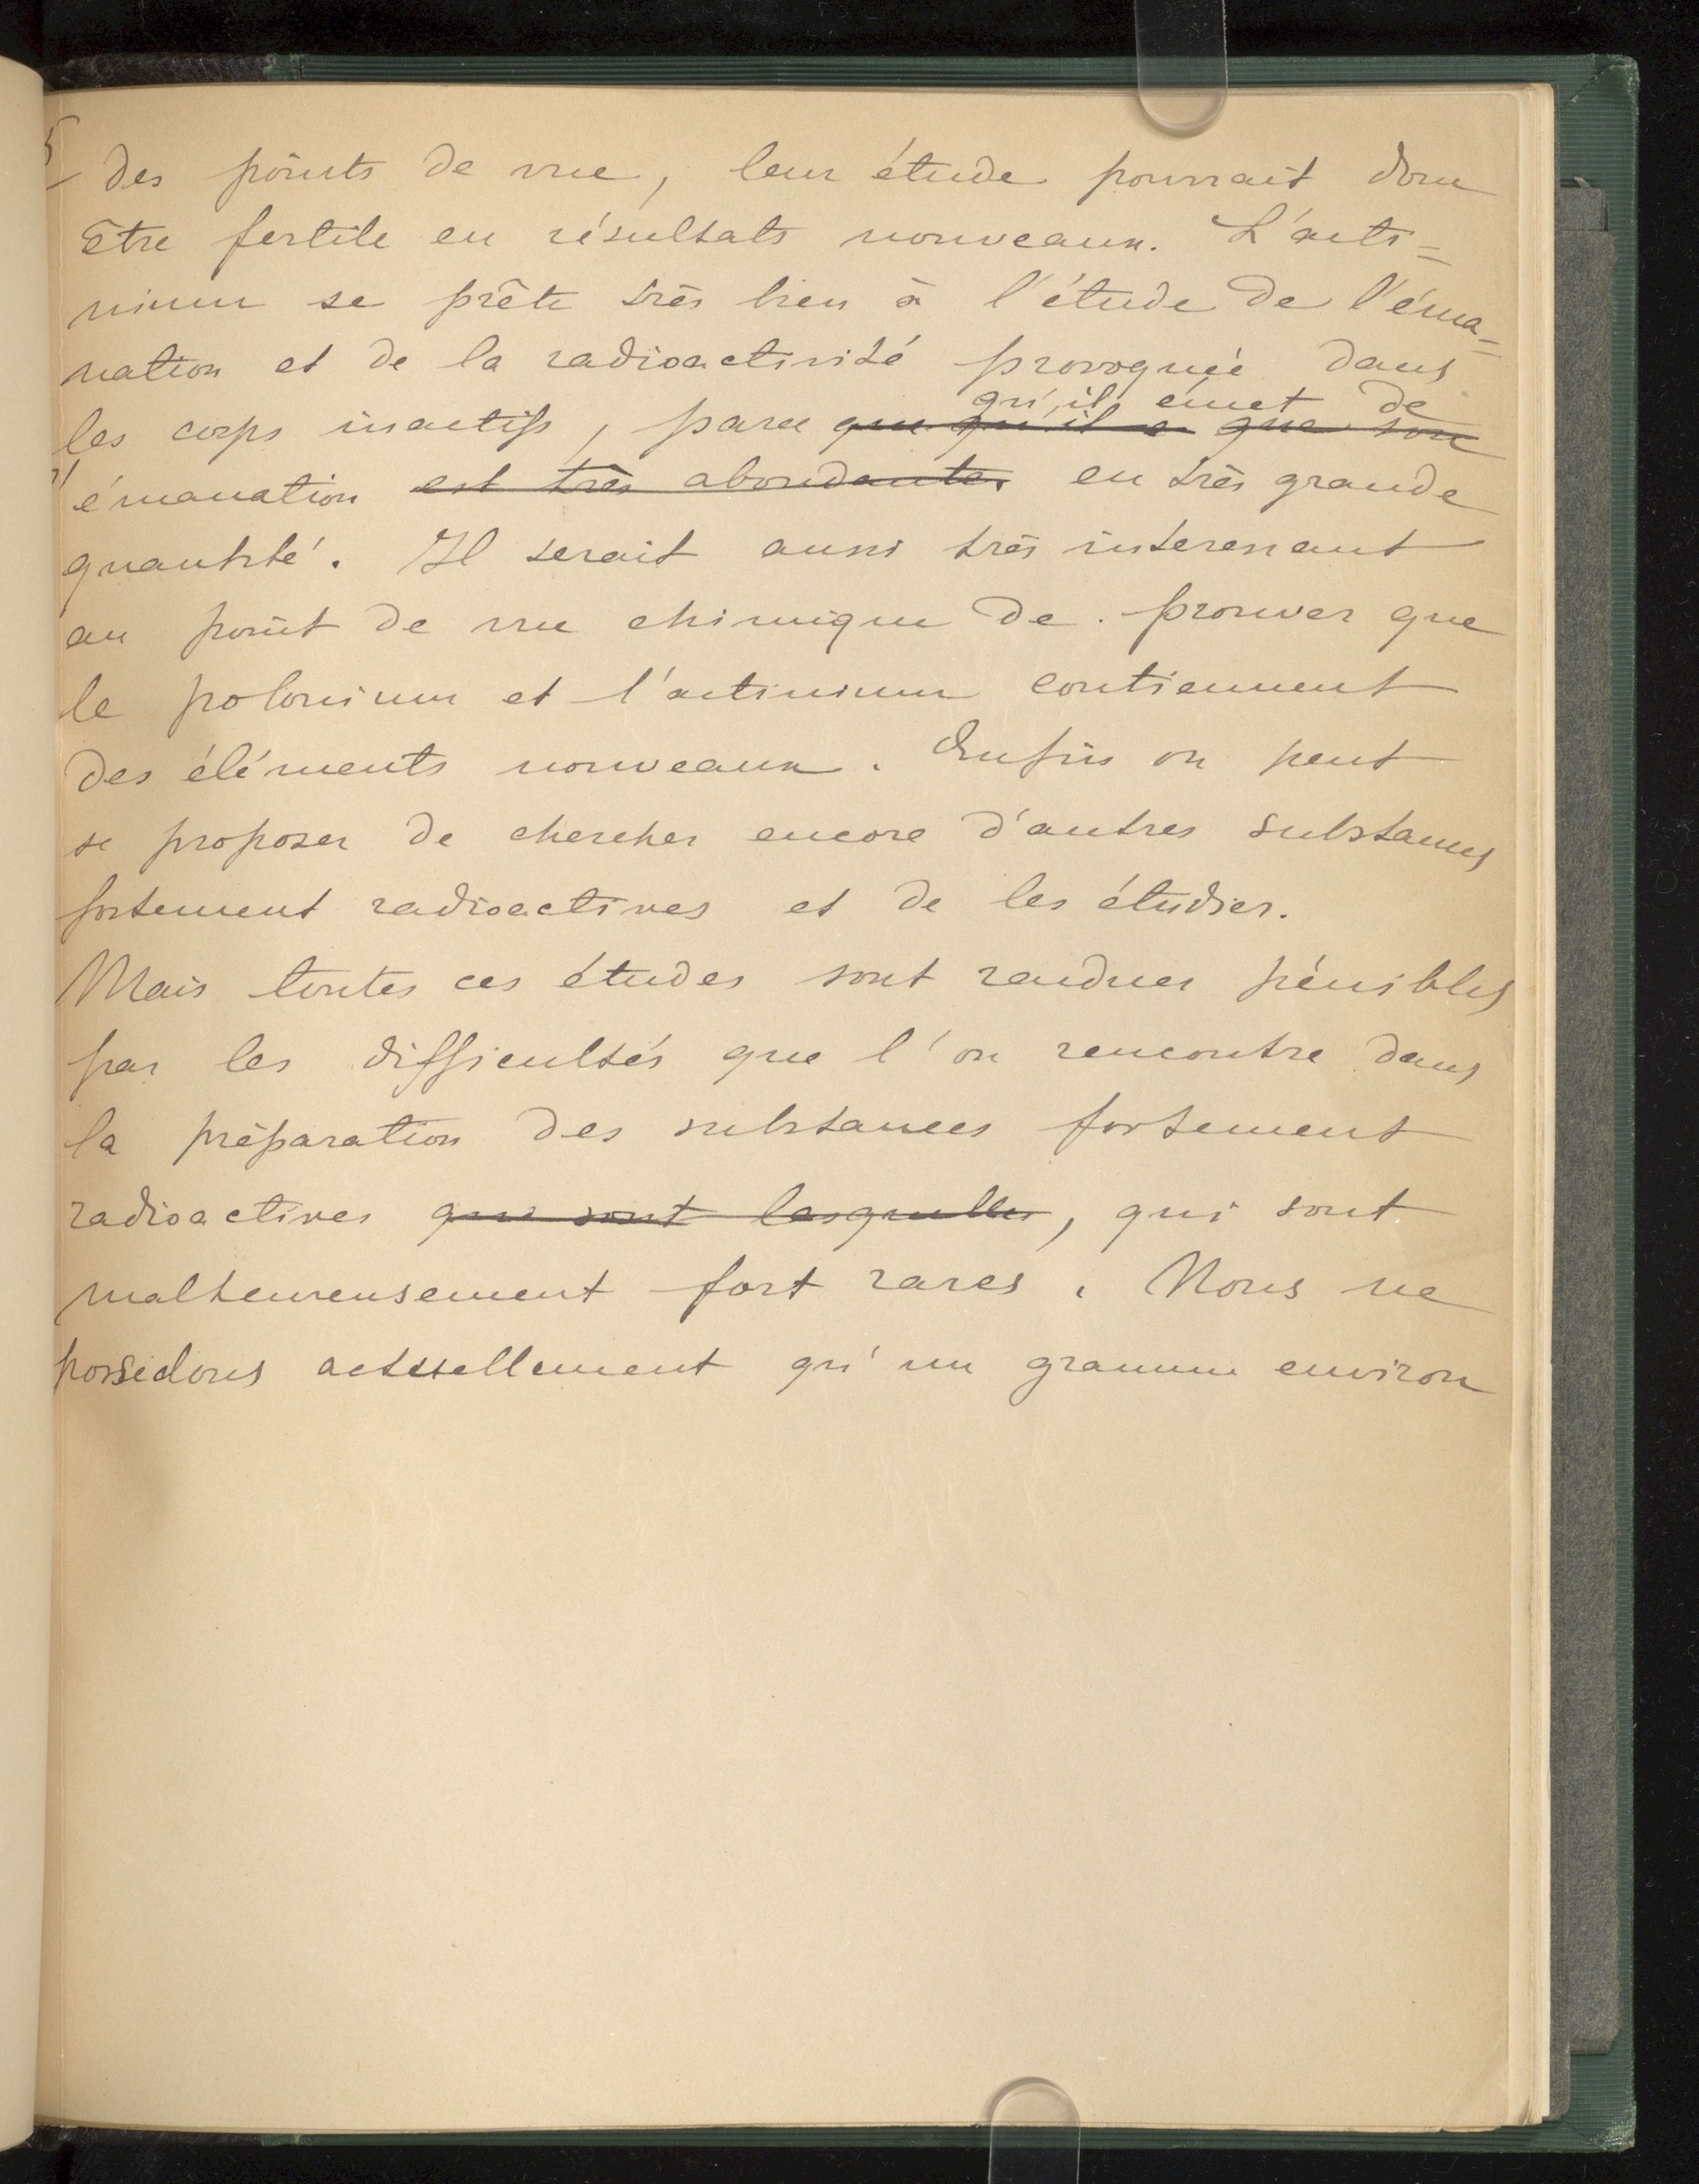 des points de vue, leur étude pourrait donc
être fertile en résultats nouveaux. L'acti=
nium se prête très bien à l'étude de l'éma=
nation et de la radioactivité provoquée dans
qu'il émet de
les corps inactifs, parce que qu'il a que son
l'émanation est très abondante. en très grande
quantité. Il serait aussi très interessant
au point de vue chimique de prouver que
le polonium et l'actinium contiennent
des éléments nouveaux. Enfin on peut
se proposer de chercher encore d'autres substances
fortement radioactives et de les étudier.
Mais toutes ces études sont rendues pénibles
par les difficultés que l'on rencontre dans
la préparation des substances fortement
radioactives qui sont lesquelles, qui sont
malheureusement fort rares. Nous ne
possedons actuellement qu'un gramme environ